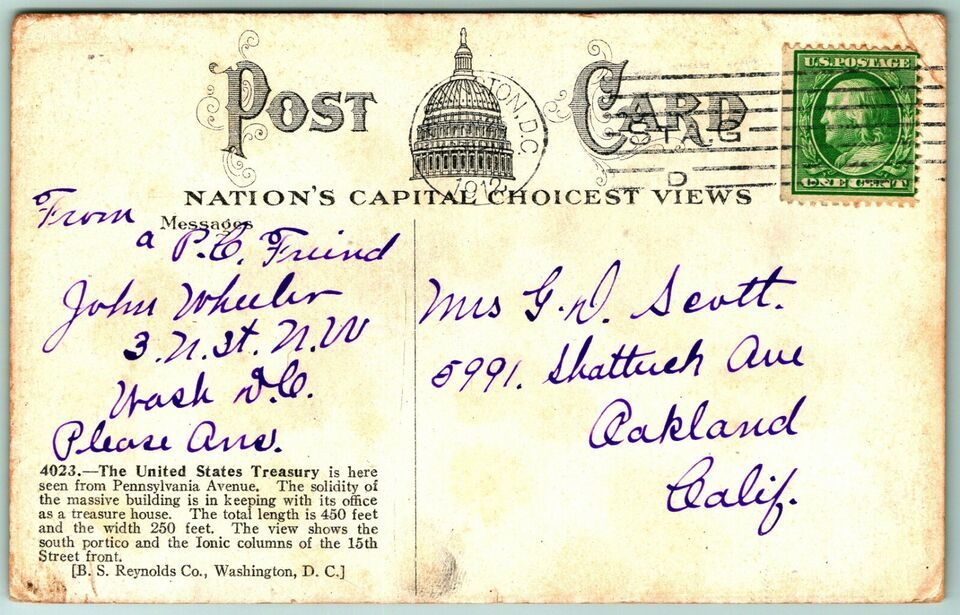 POST CARD
WASHINGTON, D.C.
1912
STAG
D
U.S. POSTAGE
ONE CENT
NATION'S CAPITAL CHOICEST VIEWS
Messages
From
a P.C. Friend
John Wheeler
3. N. St. N.W
Wash D.C.
Please Ans.
Mrs G. D. Scott.
5991. Shattuck Ave
Oakland
Calif.
4023.—The United States Treasury is here
seen from Pennsylvania Avenue. The solidity of
the massive building is in keeping with its office
as a treasure house. The total length is 450 feet
and the width 250 feet. The view shows the
south portico and the Ionic columns of the 15th
Street front.
[B. S. Reynolds Co., Washington, D. C.]